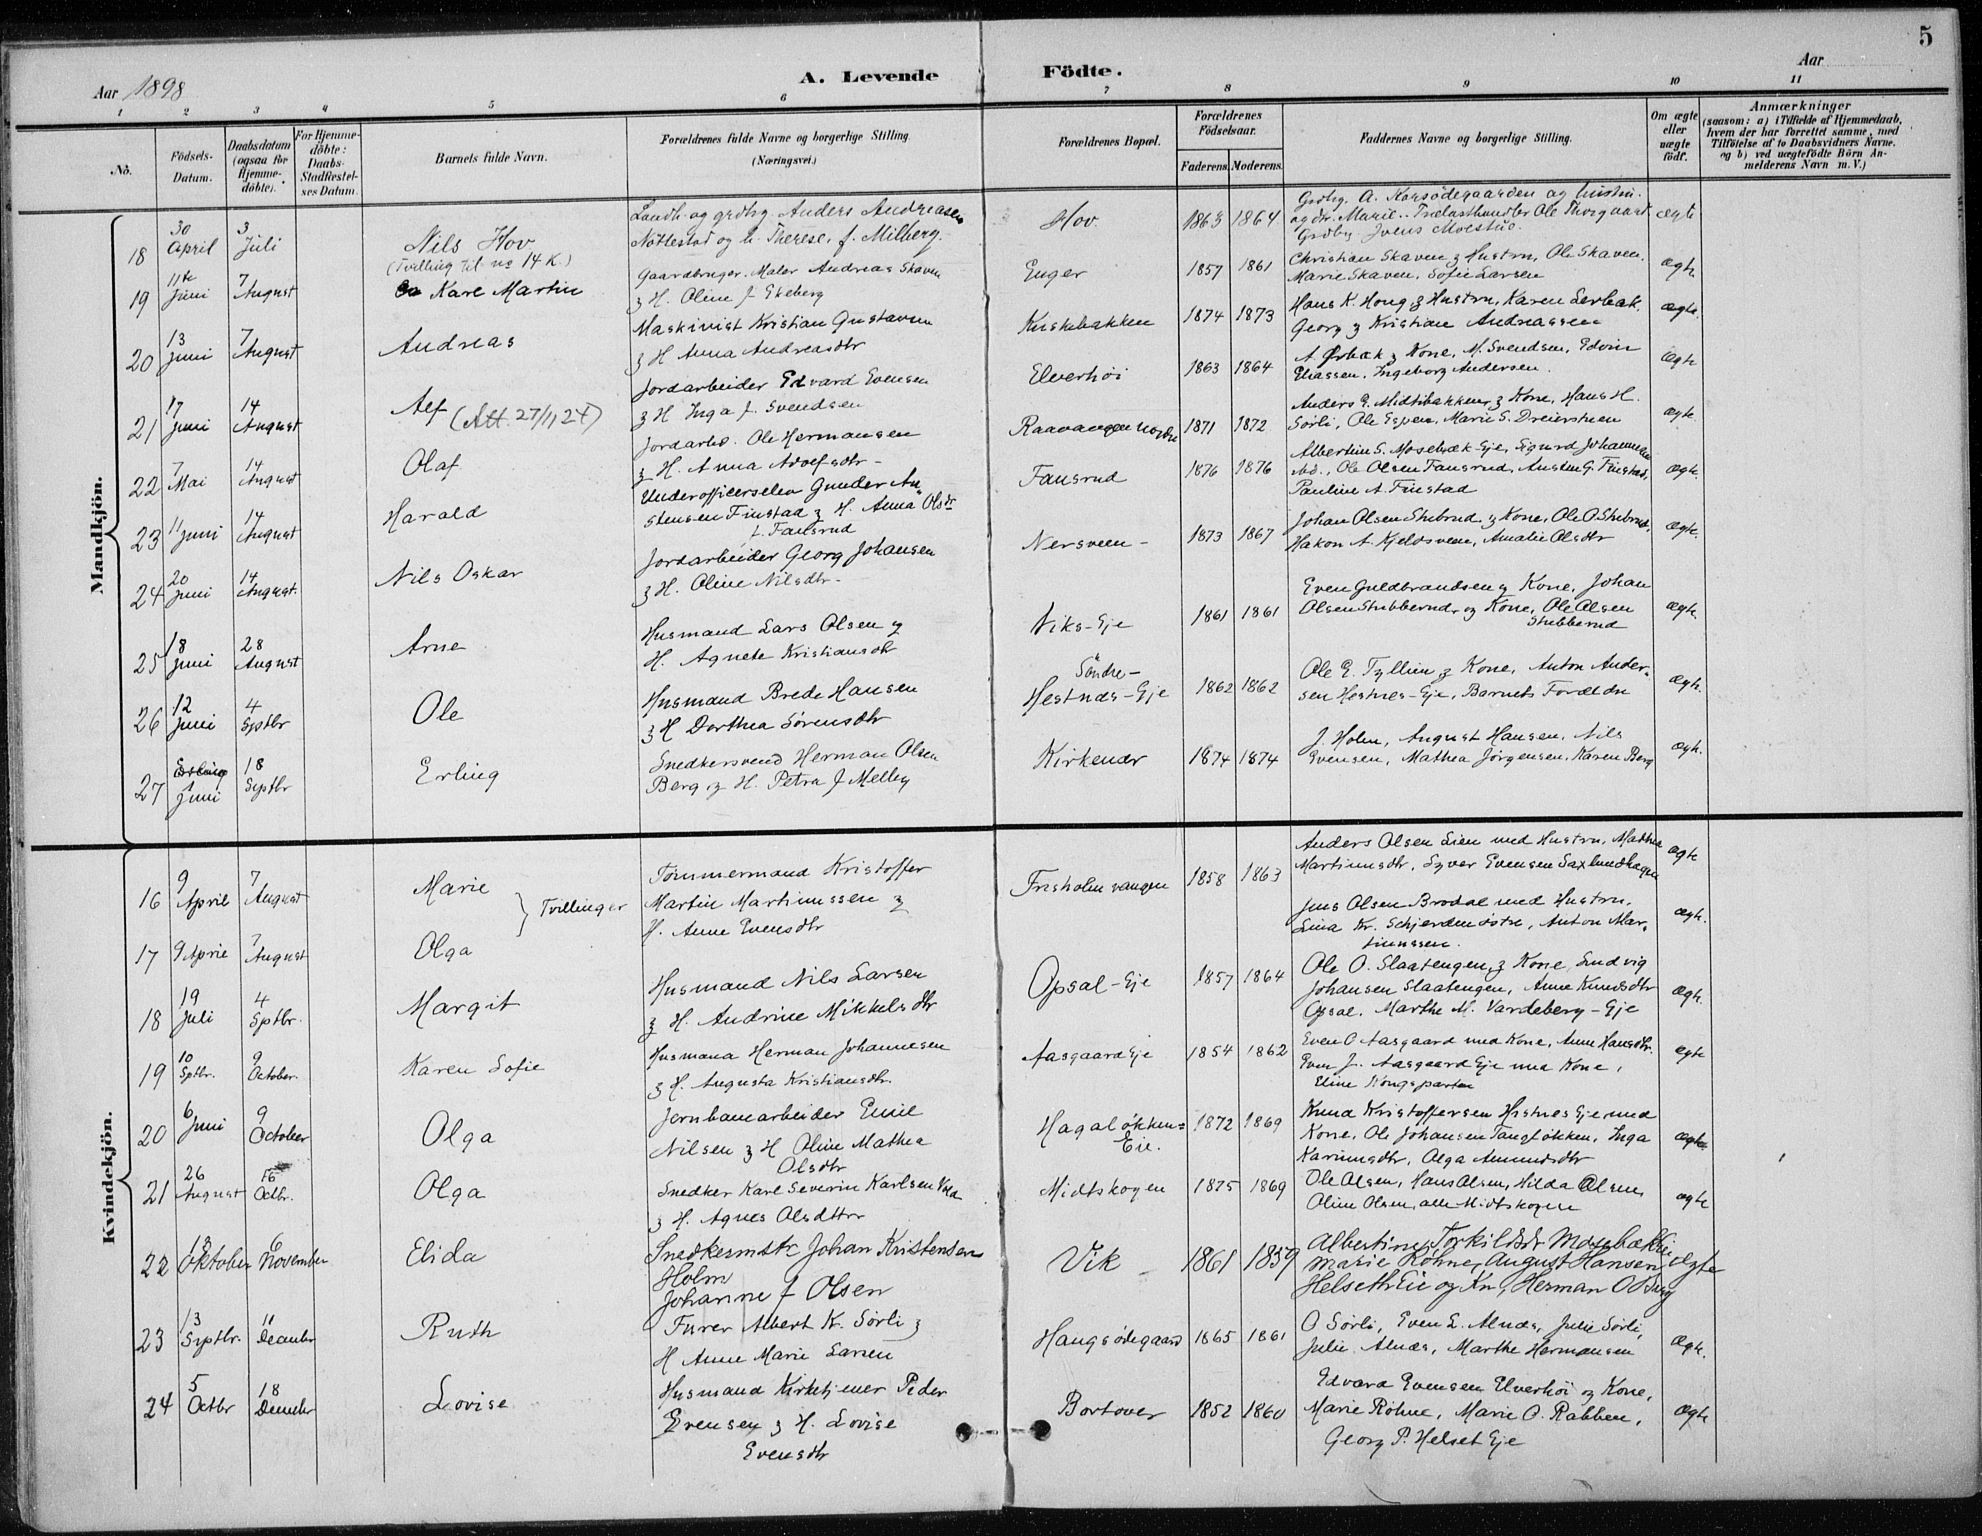 5
Aar 1898
A. Levende
Födte.
Aar
1 2 3 4 5 6 7 8 9 10 11
No.
Födsels-Datum.
Daabsdatum (ogsaa for Hjemme-döbte).
For Hjemme-döbte: Daabs-Stadfæstel-ses Datum.
Barnets fulde Navn.
Forældrenes fulde Navne og borgerlige Stilling.
(Næringsvei.)
Forældrenes Bopæl.
Forældrenes Födselsaar.
Faderens. Moderens.
Faddernes Navne og borgerlige Stilling.
Om ægte eller uægte født.
Anmærkninger
(saasom: a) i Tilfælde af Hjemmedaab,
hvem der har forrettet samme, med
Tilföielse af to Daabsvidners Navne,
og b) ved uægtefødte Börn An-
melderens Navn m. V.)
Mandkjön.
18 30 April 3 Juli Nils Hov
(Tvilling til no 14 K.)
Landh. og grdbg. Anders Andreasen
Nøttestad og h. Therese, f. Milberg.
Hov 1863 1864
Grdbg. A. Korsødegaarden og hustru.
og dtr. Marie. Trælasthandler Ole Thorgaard
Grdbg Jvens Moestue. ægte
19 11te Juni 7 August Karl Martin
Gaardbruger. Maler Andreas Skaven
& H. Oline f Ekeberg
Enger 1857 1861
Christian Skaven & Hustru, Ole Skaven.
Marie Skaven, Sofie Larsen ægte
20 13 Juni 7 August Andreas
Maskinist Kristian Gustavsen
& H Anna Andreasdtr
Kuskebakken 1874 1873
Hans K. Houg & Hustru, Karen Lerbæk.
Georg & Kristian Andreassen ægte
21 17 Juni 14 August Alf (Att. 27/11 24)
Jordarbeider Edvard Evensen
& H Inga f. Svendsen
Elverhöi 1863 1864
A. Ørbæk & Kone, M. Svendsen, Edvin
Eliassen, Ingeborg Andersen. Ægte
22 7 Mai 14 August Olaf
Jordarbd. Ole Hermansen
& H. Anna Adolfsdtr
Raavangen nordre 1871 1872
Anders E. Midtibakken & Kone, Hans H.
Sørli, Ole Espen, Marie S. Dreiersteen ægte
23 11 Juni 14 August Harald
Underofficerselev Gunder Au
stensen Finstad & H. Anna Olsdtr
f. Fansrud
Fansrud 1876 1876
Albertine S. Mosebæk Eje, Sigurd Johannesen
ibd., Ole Olsen Fansrud, Austen G. Finstad,
Pauline A. Finstad ægte.
24 20 Juni 14 August. Nils Oskar
Jordarbeider Georg Johansen
& H. Oline Nilsdtr
Nersveen 1873 1867
Johan Olsen Stubrud & Kone, Ole O. Stubrud,
Hakon A. Kjeldsveen, Amalie Olsdtr ægte.
25 18 Juni 28 August Arne
Husmand Lars Olsen og
H. Agnete Kristiansdtr
Viks-Eje 1861 1861
Even Guldbrandsen og Kone, Johan
Olsen Stubberud og Kone, Ole Olsen
Stubberud ægte.
26 12 Juni 4 Sptbr Ole
Husmand Brede Hansen
& H Dorthea Sørensdtr
Söndre-
Hestnæs-Eje 1862 1862
Ole E. Tyllien & Kone, Anton Ander-
sen Hestnes-Eje, Barnets Forældre ægte.
27 Juni 18 Sptbr Erling
Snedkersvend Herman Olsen
Berg og H. Petra f Melby
Kirkenær 1874 1874
J. Holm, August Hansen, Nils
Evensen, Mathea Jörgensen, Karen Berg ægte.
Kvindekjön.
16 9 April 7 August Marie
} Tvillinger
Tömmermand Kristoffer
Martin Martinussen &
H. Anne Evensdtr
Frisholmvangen 1858 1863
Anders Olsen Lien med Hustru, Mathea
Martinusdtr, Syver Evensen Saxlundhagen ægte
17 9 April 7 August Olga
Jens Olsen Brodal med Hustru,
Lina Kr. Schjerden østre, Anton Mar-
tinussen. ægte.
18 19 Juli 4 Sptbr. Margit
Husmand Nils Larsen
& H. Andrine Mikkelsdtr
Opsal-Eje 1857 1864
Ole O. Slaatengen & Kone, Ludvig
Johansen Slaatengen, Anne Knudsdtr
Opsal, Marthe M. Vardeberg-Eje ægte.
19 10 Sptbr. 9 October. Karen Sofie
Husmand Herman Johannesen
& H. Augusta Kristiansdtr.
Aasgaard Eje 1854 1862
Even O Aasgaard med Kone, Anne Hansdtr.
Even J. Aasgaard Eje med Kone,
Eline Kongsparten ægte
20 6 Juni 9 October Olga
Jernbanearbeider Emil
Nilsen & H Oline Mathea
Olsdtr
Hagaløkken=
Eie. 1872 1869
Knud Kristoffersen Hestnes Eje med
Kone, Ole Johansen Tangløkken, Inga
Karinusdtr, Olga Amundsdtr ægte
21 26 August 16 Octbr. Olga
Snedker Karl Severin Karlsen Vold
& H. Agnes Olsdttr
Midtskogen 1875 1869
Ole Olsen, Hans Olsen, Hilda Olsen,
Oline Olsen, alle Midtskogen ægte
22 13 Oktober 6 November Elida
Snedkermstr Johan Kristensen
Holm
Johanne f Olsen
Vik 1861 1859
Albertine Torkildsdr Mosebækkin
Marie Röhne, August Hansen
Helseth Eie og Kn, Herman O Berg ægte
23 13 Septbr. 11 Decmbr Ruth
Furer Albert K. Sørli &
H Anne Marie Larsen
Haugsödegaard 1865 1861
O Sørli, Even L. Alnæs, Julie Sørli,
Julie Alnæs, Marthe Hermansen ægte.
24 5 Octbr 18 Decmbr Lovise
Husmand Kirketjener Peder
Evensen & H. Lovise
Evensdtr
Bortover 1852 1860
Edvard Evensen Elverhöi og Kone,
Marie Röhne, Marie O. Rabben,
Georg P. Helset Eje ægte